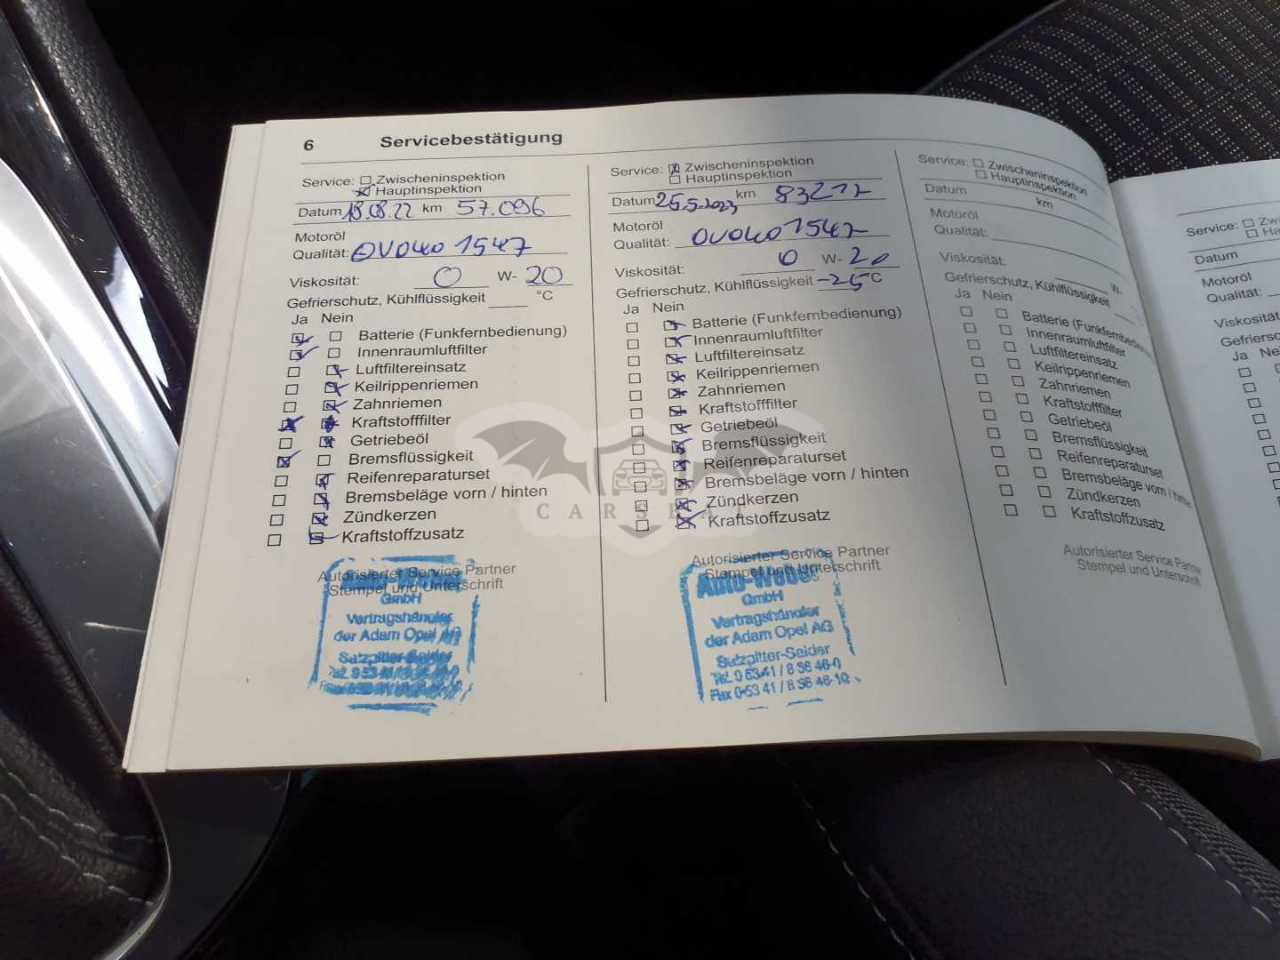 6 Servicebestätigung
Service: Zwischeninspektion
Hauptinspektion
Datum 18.08.22 km 57.096
Motoröl
Qualität: OVO401547
Viskosität: 0 W- 20
Gefrierschutz, Kühlflüssigkeit °C
Ja Nein
Batterie (Funkfernbedienung)
Innenraumluftfilter
Luftfiltereinsatz
Keilrippenriemen
Zahnriemen
Kraftstofffilter
Getriebeöl
Bremsflüssigkeit
Reifenreparaturset
Bremsbeläge vorn / hinten
Zündkerzen
Kraftstoffzusatz
Autorisierter Service Partner
Stempel und Unterschrift
GmbH
Vertragshändler
der Adam Opel AG
Salzgitter-Salder
Service: Zwischeninspektion
Hauptinspektion
Datum 25.5.2023 km 83217
Motoröl
Qualität: OVO401547
Viskosität: 0 W- 20
Gefrierschutz, Kühlflüssigkeit -25 °C
Ja Nein
Batterie (Funkfernbedienung)
Innenraumluftfilter
Luftfiltereinsatz
Keilrippenriemen
Zahnriemen
Kraftstofffilter
Getriebeöl
Bremsflüssigkeit
Reifenreparaturset
Bremsbeläge vorn / hinten
Zündkerzen
Kraftstoffzusatz
Autorisierter Service Partner
Stempel und Unterschrift
Auto-Weber
GmbH
Vertragshändler
der Adam Opel AG
Salzgitter-Salder
Tel. 0 53 41 / 8 36 46-0
Fax 0 53 41 / 8 36 46-10
Service: Zwischeninspektion
Hauptinspektion
Datum km
Motoröl
Qualität:
Viskosität: W-
Gefrierschutz, Kühlflüssigkeit
Ja Nein
Batterie
Innenraumluftfilter
Luftfiltereinsatz
Keilrippenriemen
Zahnriemen
Kraftstofffilter
Getriebeöl
Bremsflüssigkeit
Reifenreparaturset
Bremsbeläge vorn / hinten
Zündkerzen
Kraftstoffzusatz
Autorisierter Service Partner
Stempel und Unterschrift
Service:
Datum
Motoröl
Qualität:
Ja Nein